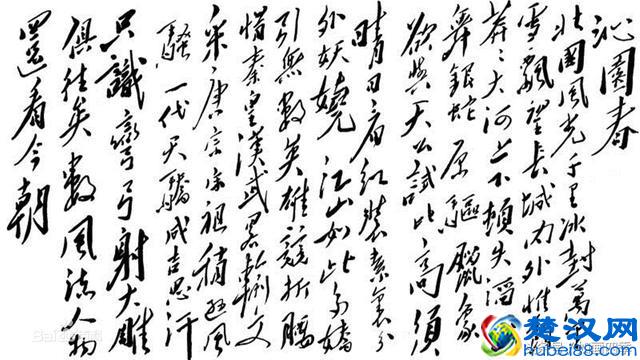 沁園春
北國風光千里冰封萬里
雪飄望長城內外惟餘
莽〻大河上下頓失滔
舞銀蛇原驅臘象
欲與天公試比高須
晴日看紅裝素裹分
外妖嬈江山如此多嬌
引無數英雄競折腰
惜秦皇漢武略輸文
采唐宗宋祖稍遜風
騷一代天驕成吉思汗
只識彎弓射大雕
俱往矣數風流人物
還看今朝
楚汉网
hubei88.com